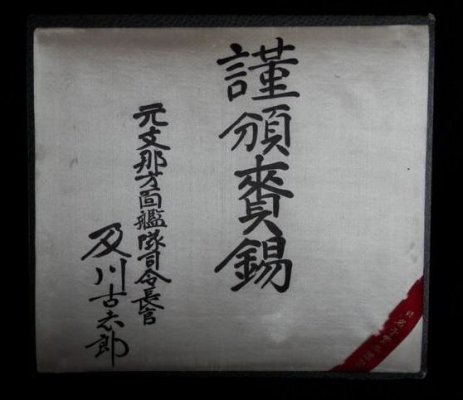 謹頒賚錫
元支那方面艦隊司令長官
及川古志郎